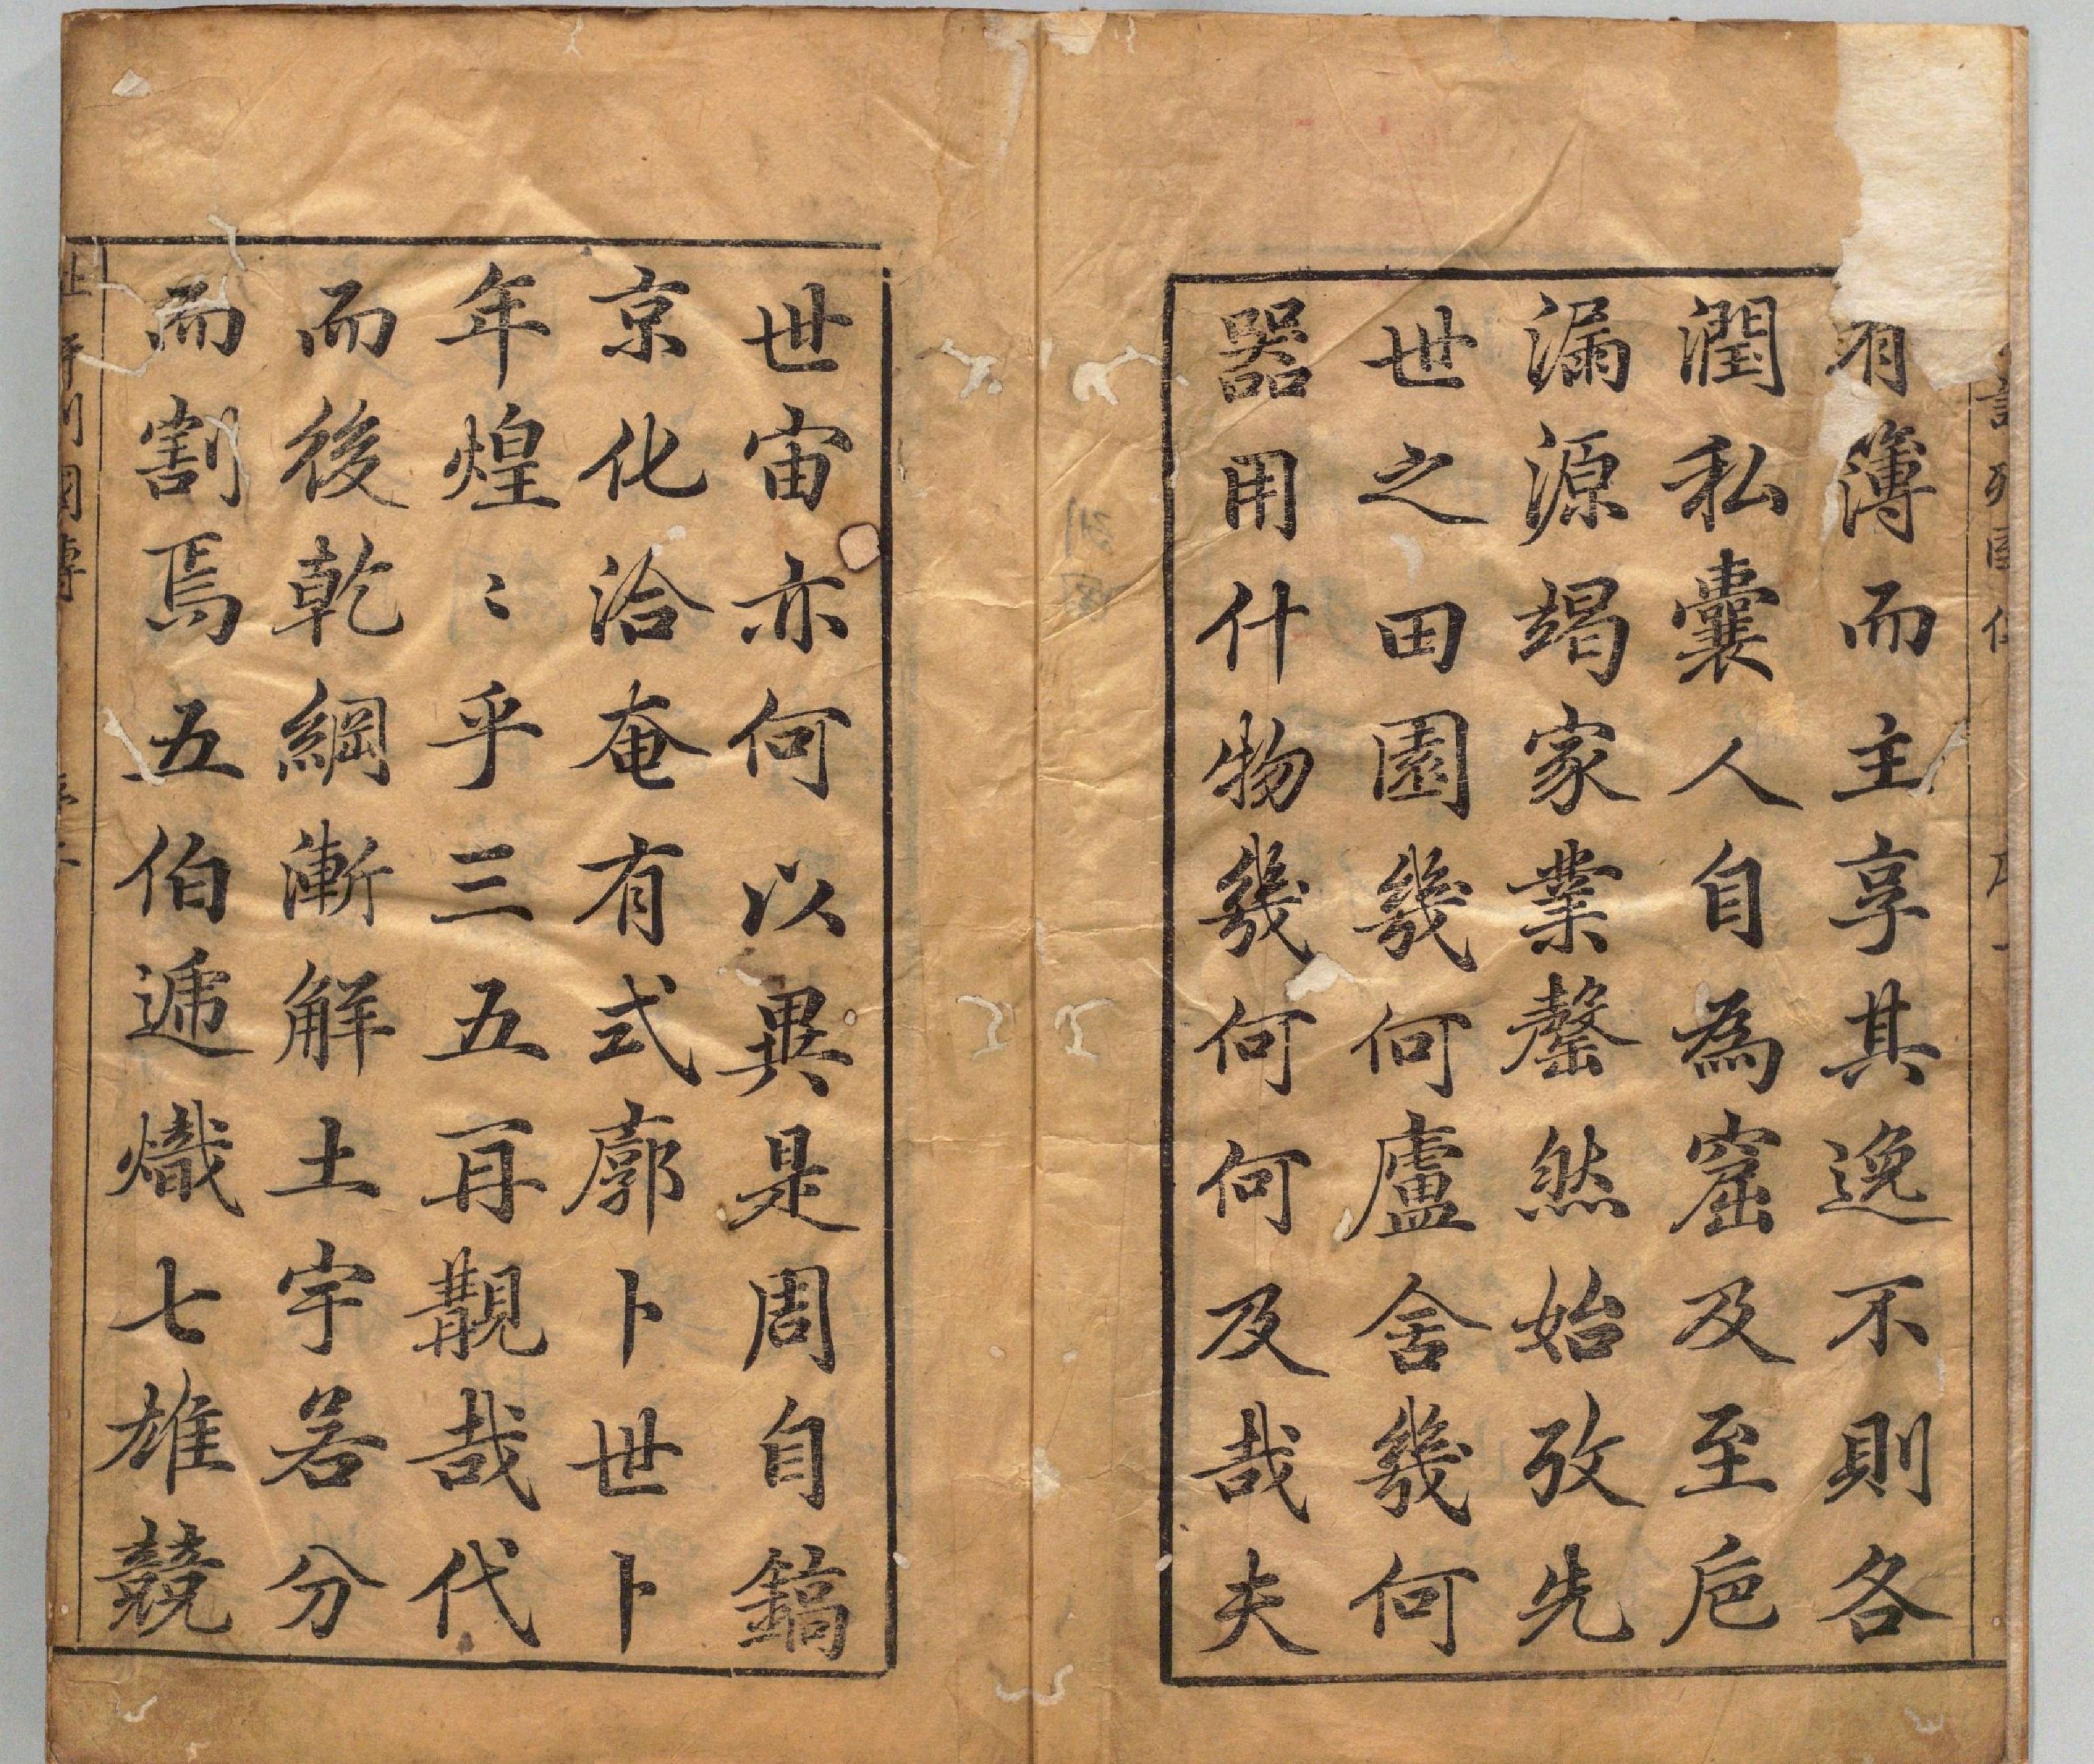 有簿而主享其逸不則各
潤私囊人自為窟及至卮
漏源竭家業罄然始攷先
世之田園幾何廬舍幾何
器用什物幾何何及哉夫
世宙亦何以異是周自鎬
京化洽奄有式廓卜世卜
年煌〻乎三五再覯哉代
而後乾綱漸解土宇若分
而割焉五伯遞熾七雄競
列國傳